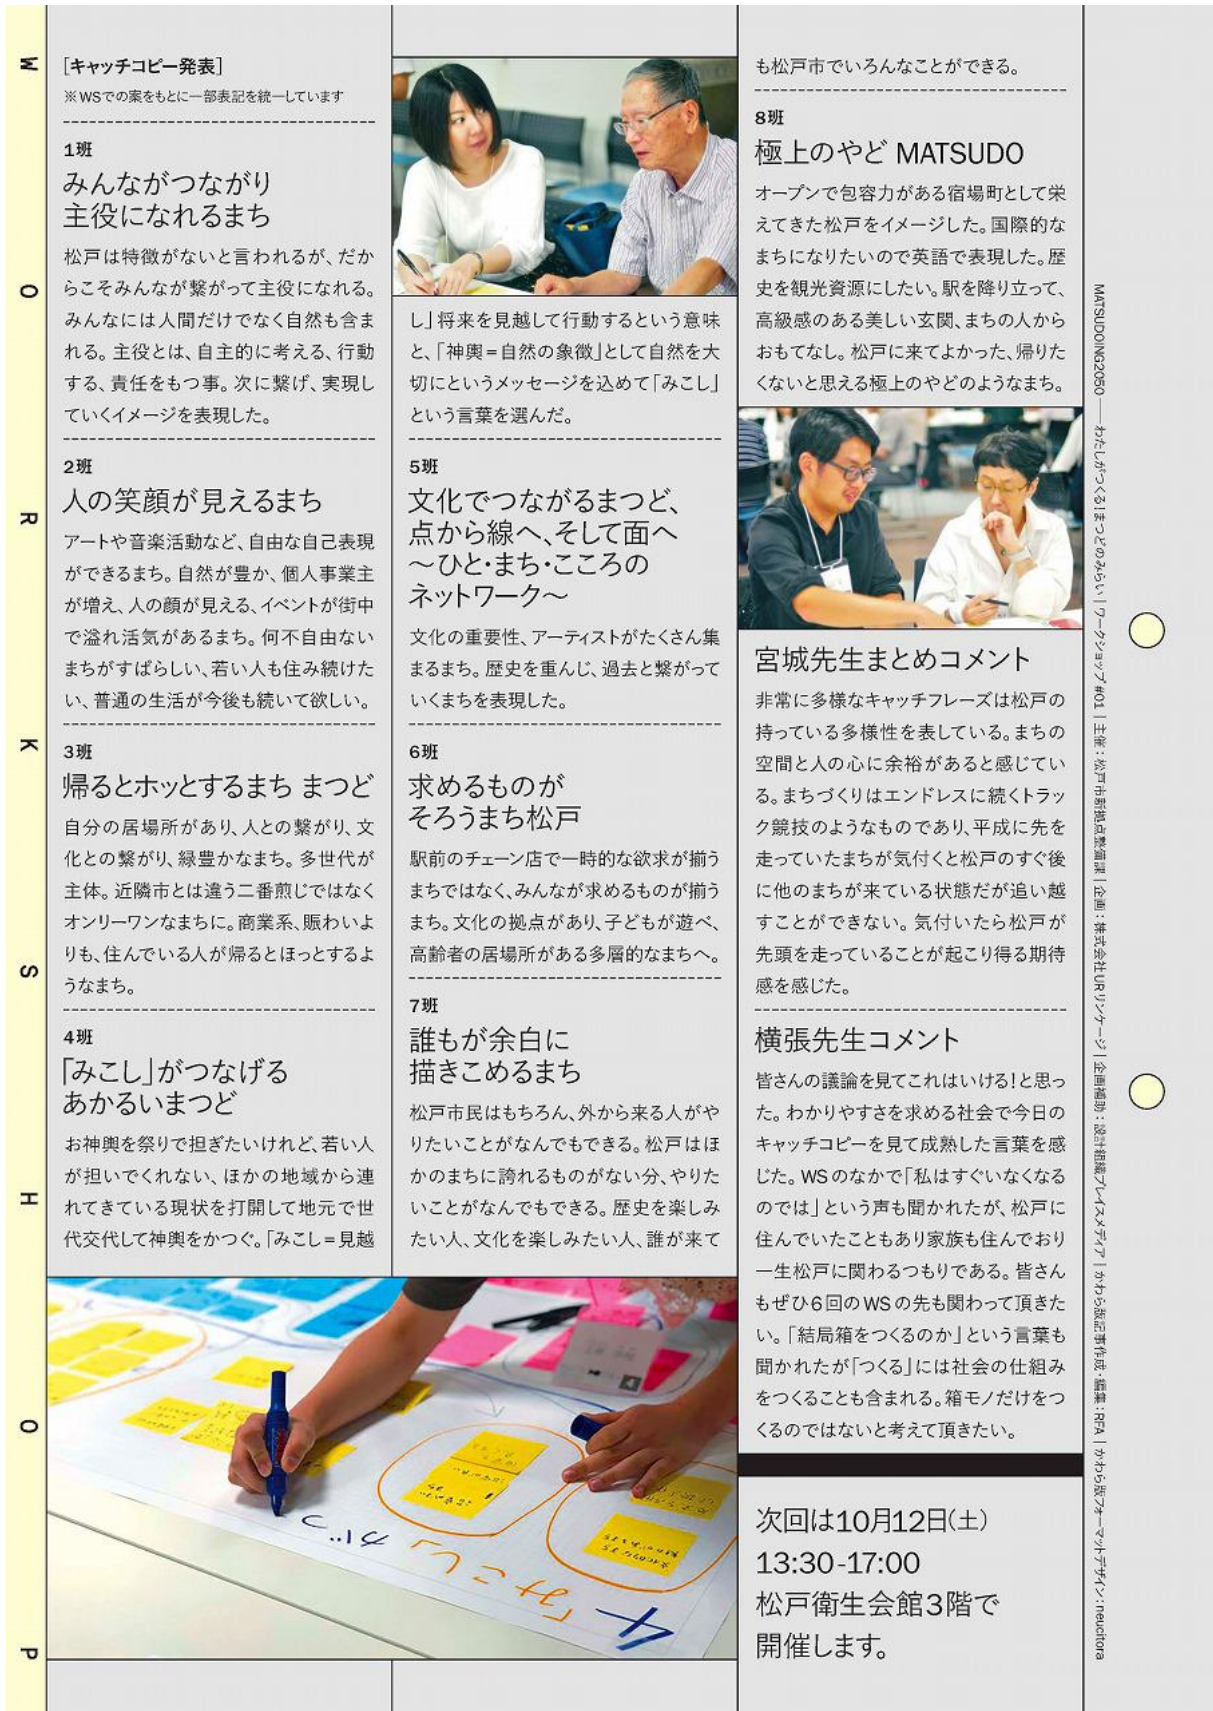 WORKSHOP
［キャッチコピー発表］
※WSでの案をもとに一部表記を統一しています
1班
みんながつながり
主役になれるまち
松戸は特徴がないと言われるが、だか
らこそみんなが繋がって主役になれる。
みんなには人間だけでなく自然も含ま
れる。主役とは、自主的に考える、行動
する、責任をもつ事。次に繋げ、実現し
ていくイメージを表現した。
2班
人の笑顔が見えるまち
アートや音楽活動など、自由な自己表現
ができるまち。自然が豊か、個人事業主
が増え、人の顔が見える、イベントが街中
で溢れ活気があるまち。何不自由ない
まちがすばらしい、若い人も住み続けた
い、普通の生活が今後も続いて欲しい。
3班
帰るとホッとするまち まつど
自分の居場所があり、人との繋がり、文
化との繋がり、緑豊かなまち。多世代が
主体。近隣市とは違う二番煎じではなく
オンリーワンなまちに。商業系、賑わいよ
りも、住んでいる人が帰るとほっとするよ
うなまち。
4班
「みこし」がつなげる
あかるいまつど
お神輿を祭りで担ぎたいけれど、若い人
が担いでくれない、ほかの地域から連
れてきている現状を打開して地元で世
代交代して神輿をかつぐ。「みこし＝見越
し」将来を見越して行動するという意味
と、「神輿＝自然の象徴」として自然を大
切にというメッセージを込めて「みこし」
という言葉を選んだ。
5班
文化でつながるまつど、
点から線へ、そして面へ
〜ひと・まち・こころの
ネットワーク〜
文化の重要性、アーティストがたくさん集
まるまち。歴史を重んじ、過去と繋がって
いくまちを表現した。
6班
求めるものが
そろうまち松戸
駅前のチェーン店で一時的な欲求が揃う
まちではなく、みんなが求めるものが揃う
まち。文化の拠点があり、子どもが遊べ、
高齢者の居場所がある多層的なまちへ。
7班
誰もが余白に
描きこめるまち
松戸市民はもちろん、外から来る人がや
りたいことがなんでもできる。松戸はほ
かのまちに誇れるものがない分、やりた
いことがなんでもできる。歴史を楽しみ
たい人、文化を楽しみたい人、誰が来て
も松戸市でいろんなことができる。
8班
極上のやど MATSUDO
オープンで包容力がある宿場町として栄
えてきた松戸をイメージした。国際的な
まちになりたいので英語で表現した。歴
史を観光資源にしたい。駅を降り立って、
高級感のある美しい玄関、まちの人から
おもてなし。松戸に来てよかった、帰りた
くないと思える極上のやどのようなまち。
宮城先生まとめコメント
非常に多様なキャッチフレーズは松戸の
持っている多様性を表している。まちの
空間と人の心に余裕があると感じてい
る。まちづくりはエンドレスに続くトラッ
ク競技のようなものであり、平成に先を
走っていたまちが気付くと松戸のすぐ後
に他のまちが来ている状態だが追い越
すことができない。気付いたら松戸が
先頭を走っていることが起こり得る期待
感を感じた。
横張先生コメント
皆さんの議論を見てこれはいける！と思っ
た。わかりやすさを求める社会で今日の
キャッチコピーを見て成熟した言葉を感
じた。WSのなかで「私はすぐいなくなる
のでは」という声も聞かれたが、松戸に
住んでいたこともあり家族も住んでおり
一生松戸に関わるつもりである。皆さん
もぜひ6回のWSの先も関わって頂きた
い。「結局箱をつくるのか」という言葉も
聞かれたが「つくる」には社会の仕組み
をつくることも含まれる。箱モノだけをつ
くるのではないと考えて頂きたい。
次回は10月12日（土）
13:30-17:00
松戸衛生会館3階で
開催します。
4「みこし」がつ
MATSUDOING2050——わたしがつくる！まつどのみらい｜ワークショップ#01｜主催：松戸市新拠点整備課｜企画：株式会社URリンケージ｜企画補助：設計組織プレイスメディア｜かわら版記事作成・編集：RFA｜かわら版フォーマットデザイン：neucitora